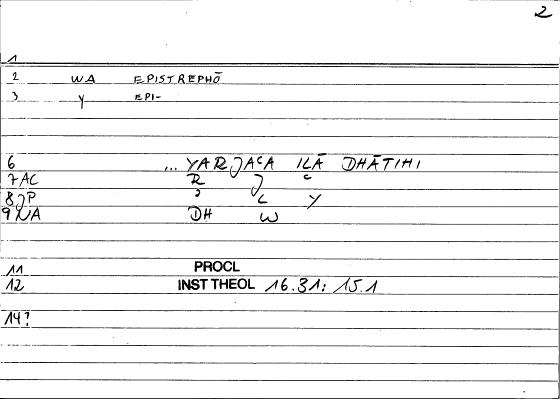 2
1
2 WA EPISTREPHŌ
3 Y EPI-
6 ... YARJAʿA ILĀ DHĀTIHI
7AC R J ʿ
8JP ʾ L Y
9NA DH W
11 PROCL
12 INST THEOL 16.31; 15.1
14?